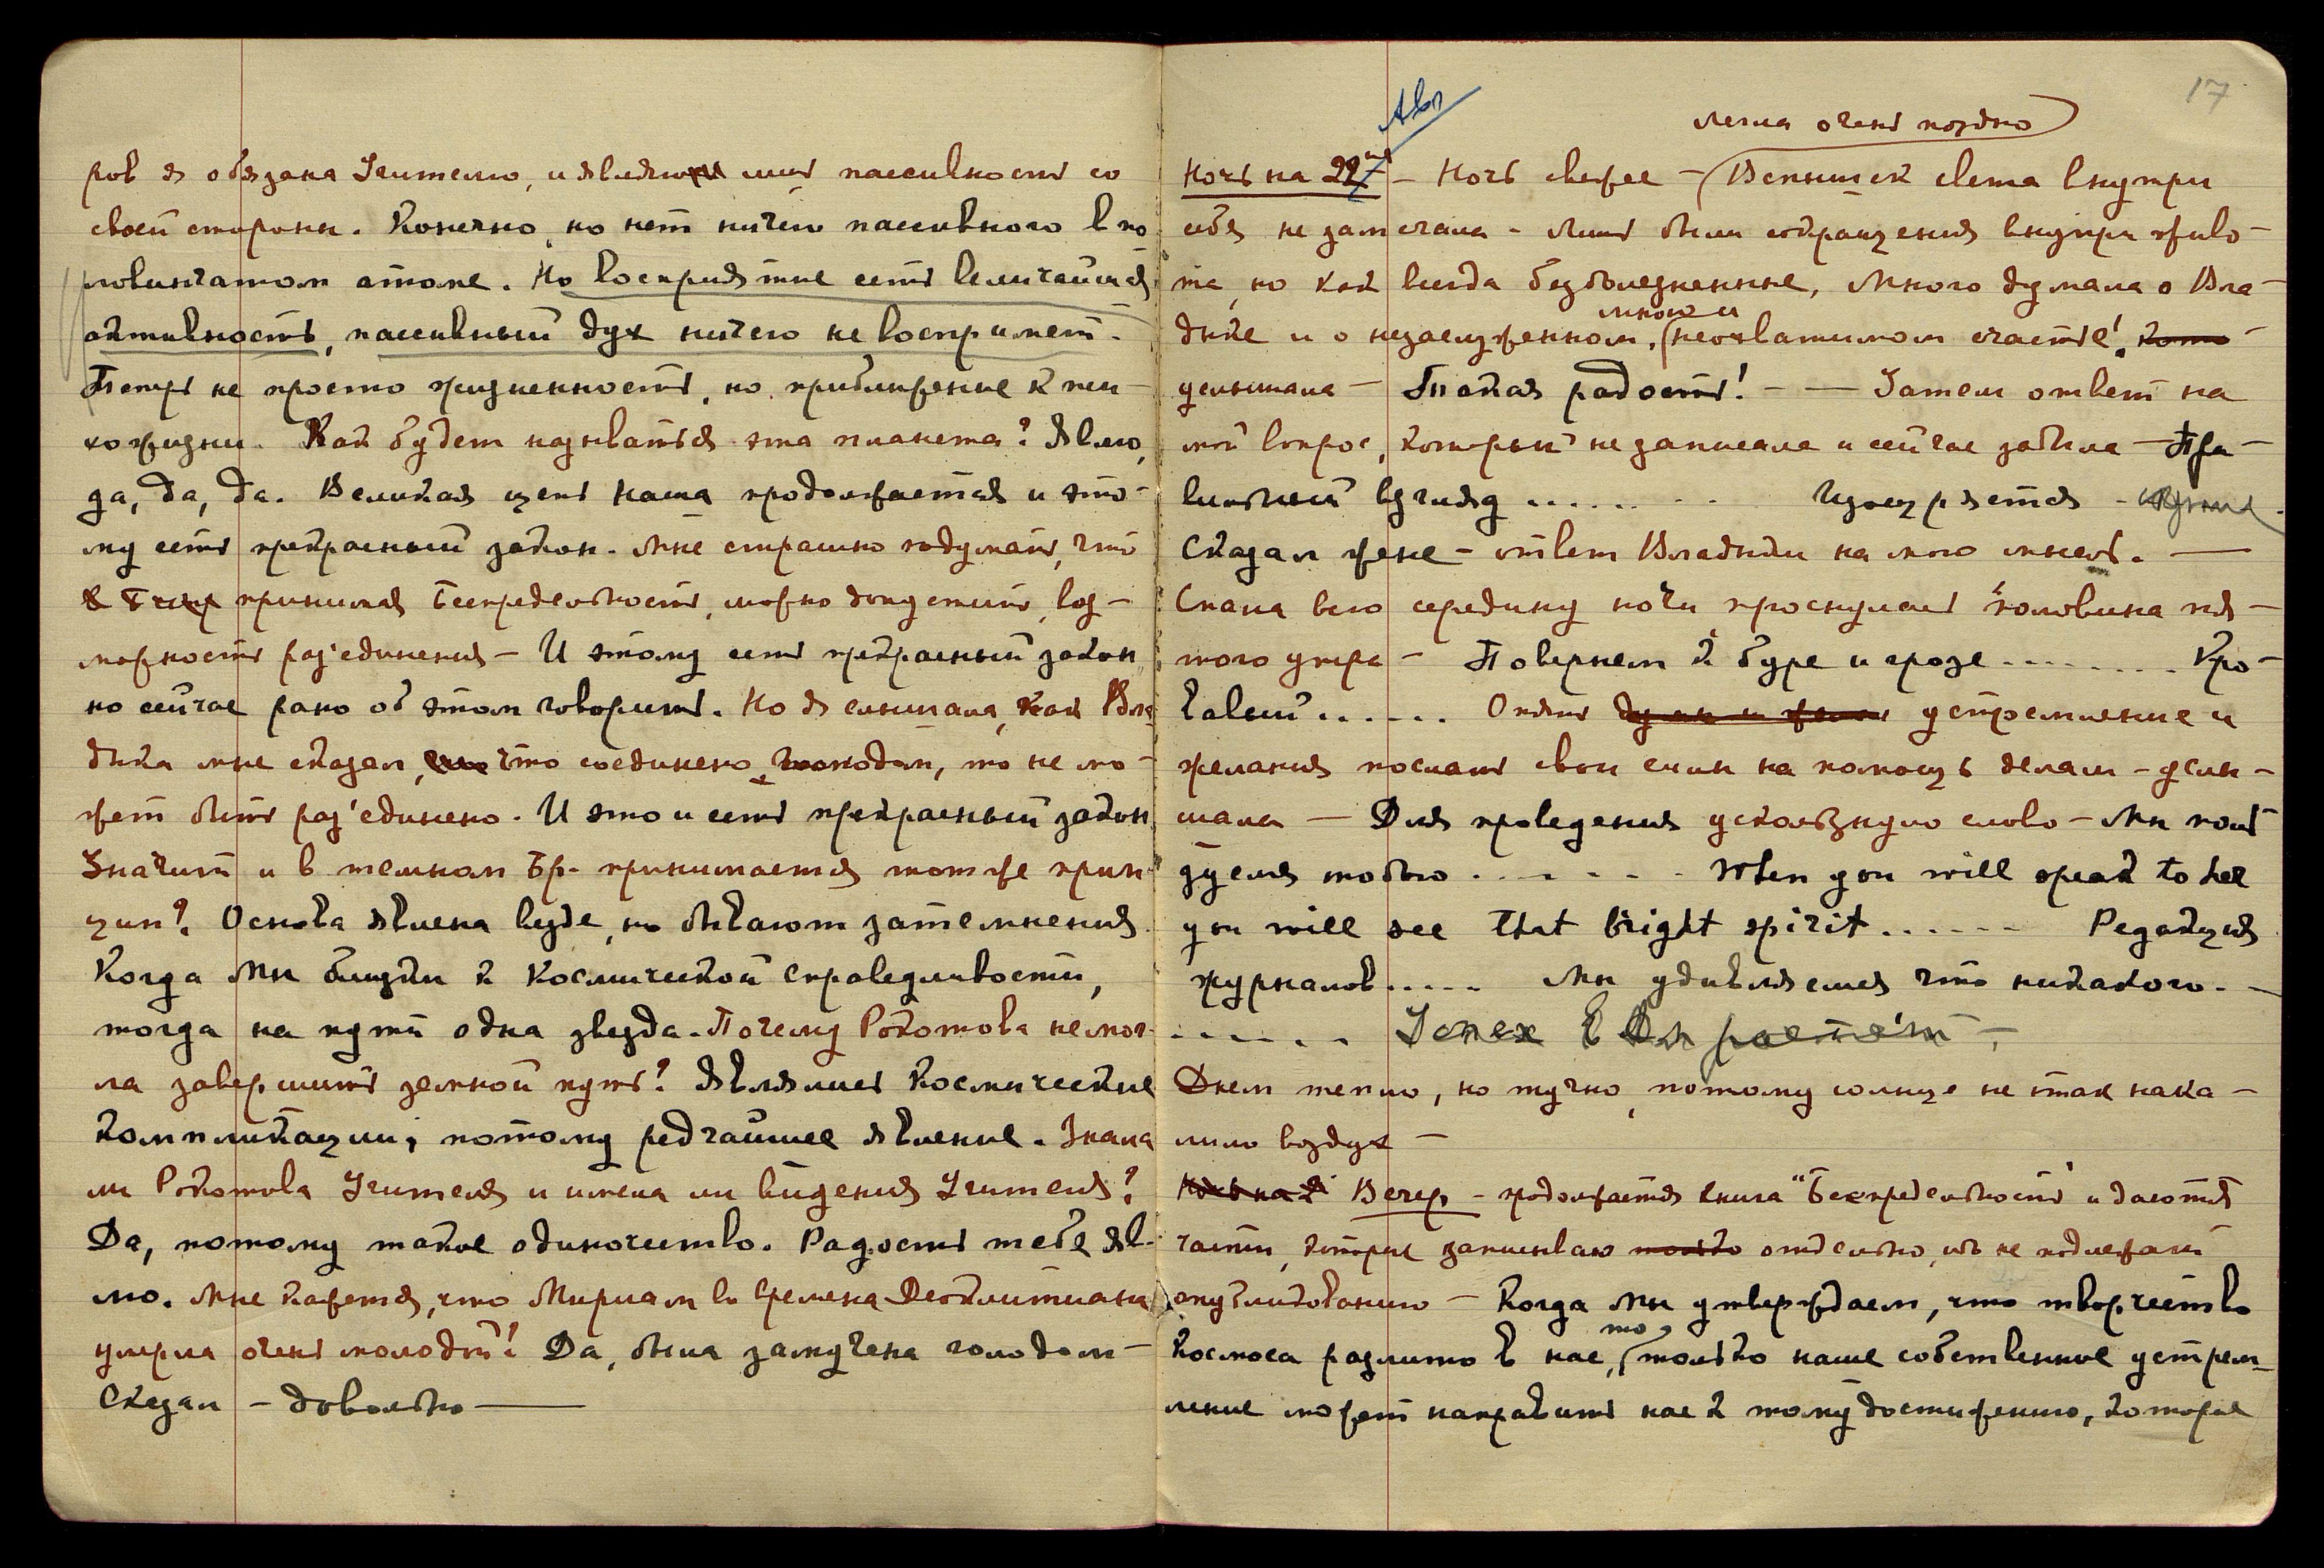 ров я обязана Учителю, и являю лишь пассивность со
своей стороны. Конечно, но нет ничего пассивного в по
ловинчатом атоме. Но восприятие есть величайшая
активность, пассивный дух ничего не воспримет.
Теперь не просто жизненность, но приближение к пси-
хожизни. Как будет называться эта планета? Явлю,
да, да, да. Великая цепь наша продолжается и это-
му есть прекрасный закон. Мне страшно подумать, что
принимая Беспредельность, можно допустить, воз-
можность раз'единения – И этому есть прекрасный закон,
но сейчас рано об этом говорить. Но я слышала, как Вла
дыка мне сказал, что соединено, то не мо-
жет быть раз'единено. И это и есть прекрасный закон.
Значит и в темном Бр. принимается тот же прин-
цип? Основа явлена везде, но бывают затемнения.
Когда Мы близки к Космической справедливости,
тогда на пути одна звезда. Почему Рокотова не мог-
ла завершить земной путь? Являлись Космические
компликации, потому редчайшее явление. Знала
ли Рокотова Учителя и имела ли видения Учителя?
Да, потому такое одиночество. Радость тебе яв-
лю. Мне кажется, что Мириам во времена Деоклитиана
умерла очень молодой? Да, была замучена голодом –
Сказал – довольно ———
17
Авг
легла очень поздно
Ночь на 22 – Ночь свежее – Вспышек света внутри
себя не замечала – лишь были сокращения внутри живо-
та, но как всегда безболезненные, Много думала о Вла-
дыке и о незаслуженном, мною и неохватимом счастье!
услышала – Такая радость! – — Затем ответ на
мой вопрос, который не записала и сейчас забыла – Пра-
вильный взгляд ........ изощряется –
Сказал жене – ответ Владыки на мою мысль. —
Спала всю середину ночи, проснулась половина пя-
того утра – Повернем к буре и грозе ......... Кро-
вавый ...... Опять устремление и
желания послать свои силы на помощь делам – услы-
шала — Для проведения ускользнуло слово – Мы поль
зуемся тобою ....... When you will speak to her
you will see that bright spirit ...... Редакция
журналов ..... Мы удивляемся что никакого. –
...... Успех в
Днем тепло, но тучно, потому солнце не так нака-
лило воздух —
Ночь на Вечер – продолжается книга "Беспредельность и даются
части, которые записываю отдельно, не подлежат
опубликованию – Когда Мы утверждаем, что творчество
Космоса разлито в нас, то только наше собственное устрем-
ление может направить нас к тому достижению, которое